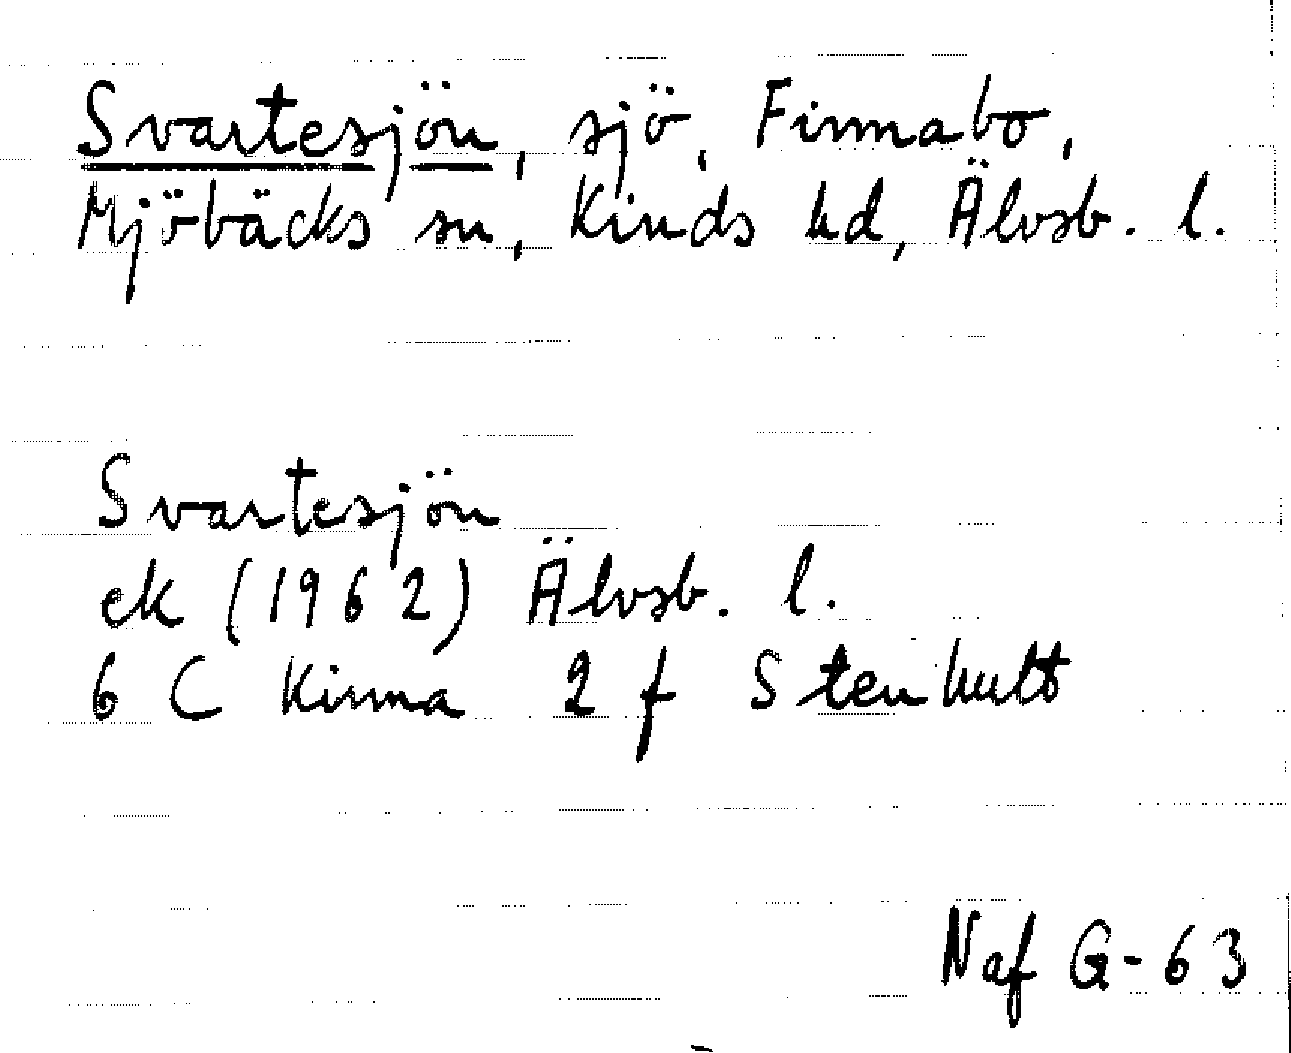 Svartesjön, sjö, Finnabo,
Mjöbäcks sn, Kinds hd, Älvsb. l.
Svartesjön
ek (1962) Älvsb. l.
6 C Kinna 2 f Stenhult
Naf G-63